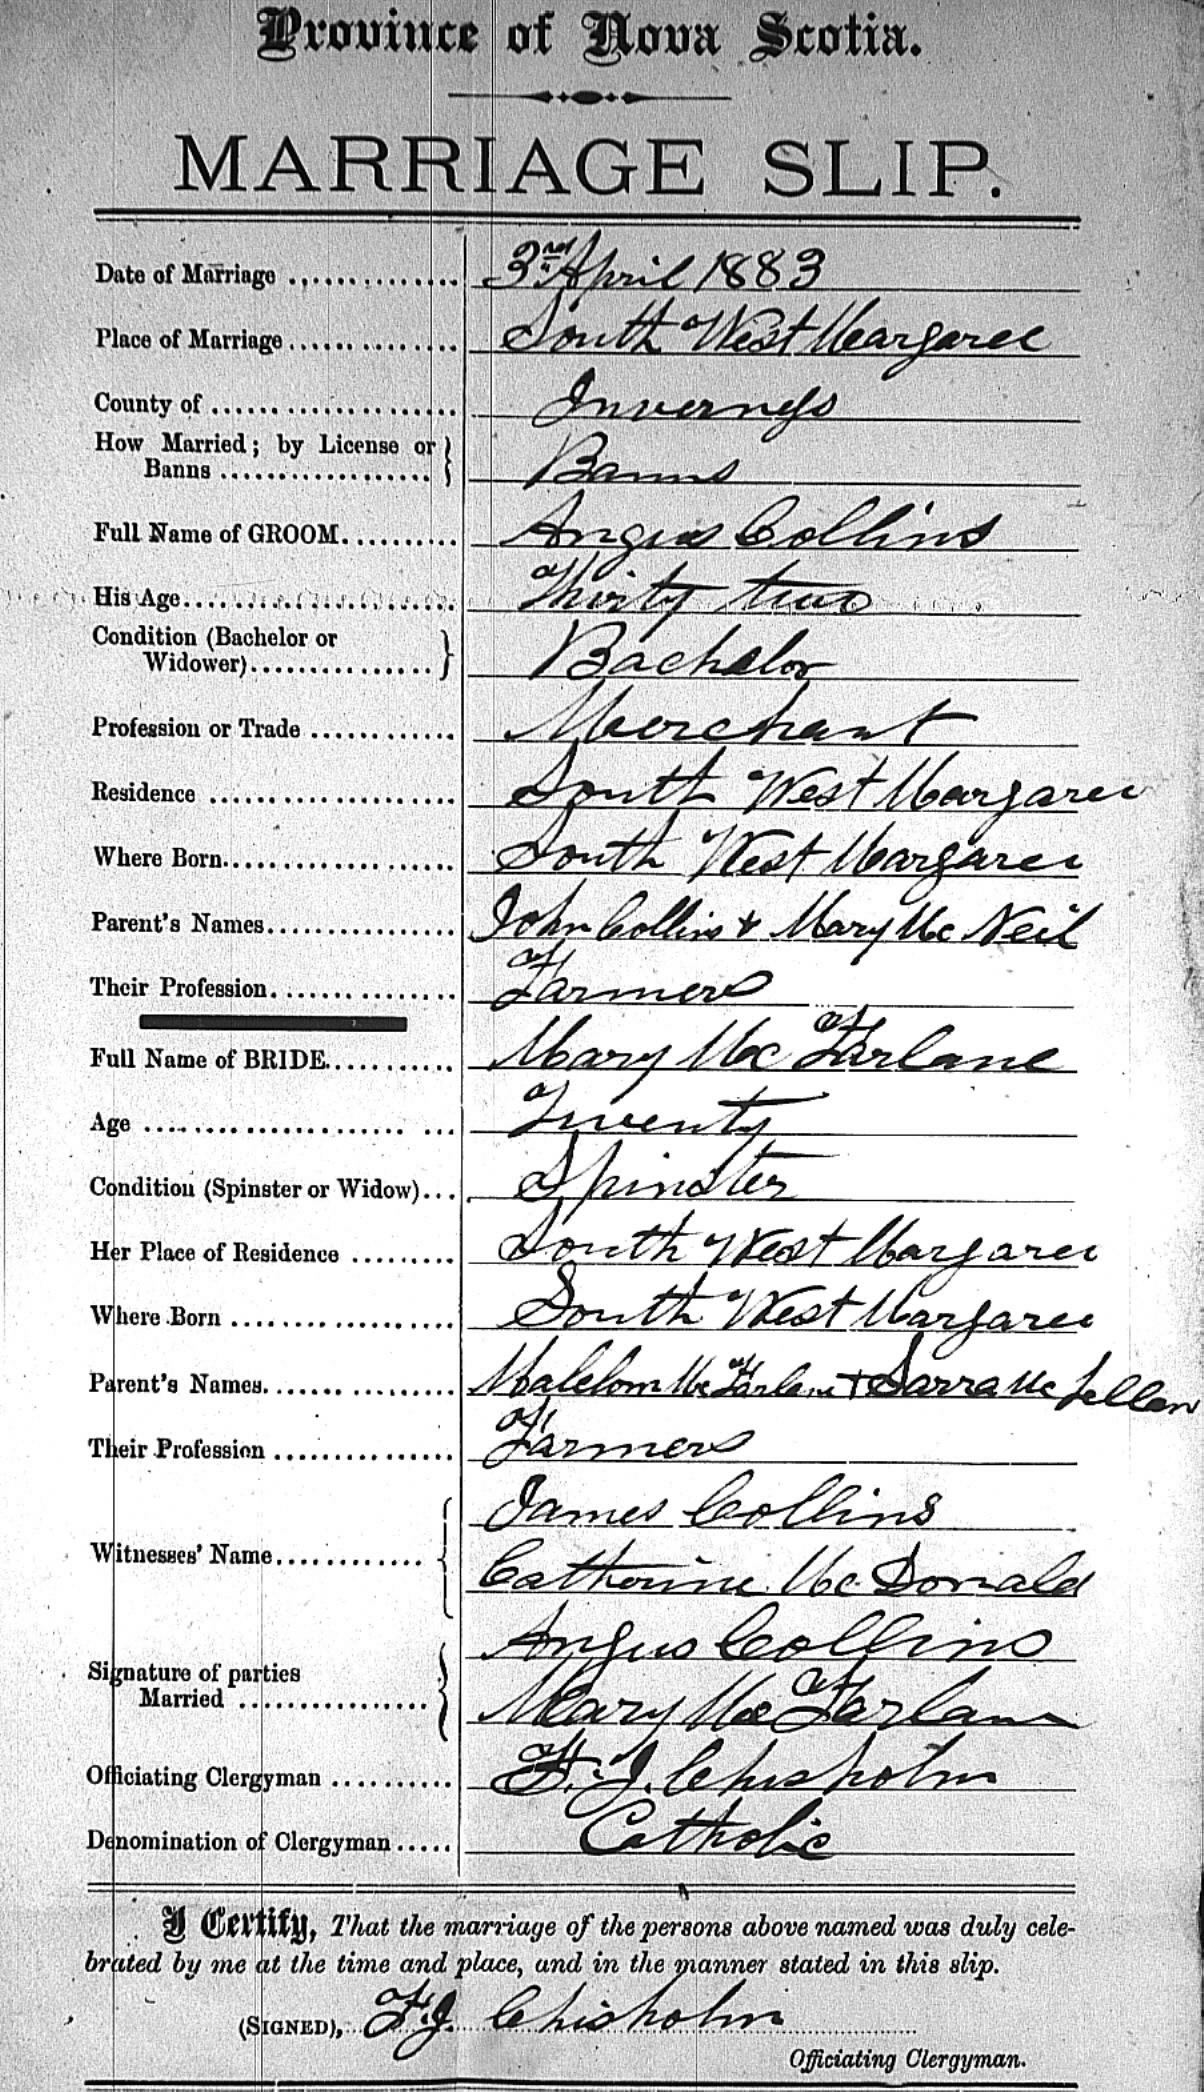 Province of Nova Scotia.
MARRIAGE SLIP.
Date of Marriage .............. 3rd April 1883
Place of Marriage .............. South West Margaree
County of ...................... Inverness
How Married; by License or
Banns .................. Banns
Full Name of GROOM.......... Angus Collins
His Age........................ Thirty two
Condition (Bachelor or
Widower)................ Bachelor
Profession or Trade ............ Merchant
Residence ...................... South West Margaree
Where Born..................... South West Margaree
Parent's Names................. John Collins & Mary McNeil
Their Profession................ Farmers
Full Name of BRIDE........... Mary McFarlane
Age ........................... Twenty
Condition (Spinster or Widow).... Spinster
Her Place of Residence ......... South West Margaree
Where Born .................... South West Margaree
Parent's Names................. Malclom McFarlane + Sarra McLellan
Their Profession ................ Farmers
James Collins
Witnesses' Name.............
Catherine McDonald
Angus Collins
Signature of parties
Married ................ Mary McFarlane
Officiating Clergyman .......... F. J. Chisholm
Denomination of Clergyman ..... Catholic
I Certify, That the marriage of the persons above named was duly cele-
brated by me at the time and place, and in the manner stated in this slip.
(SIGNED), F.J. Chisholm
Officiating Clergyman.